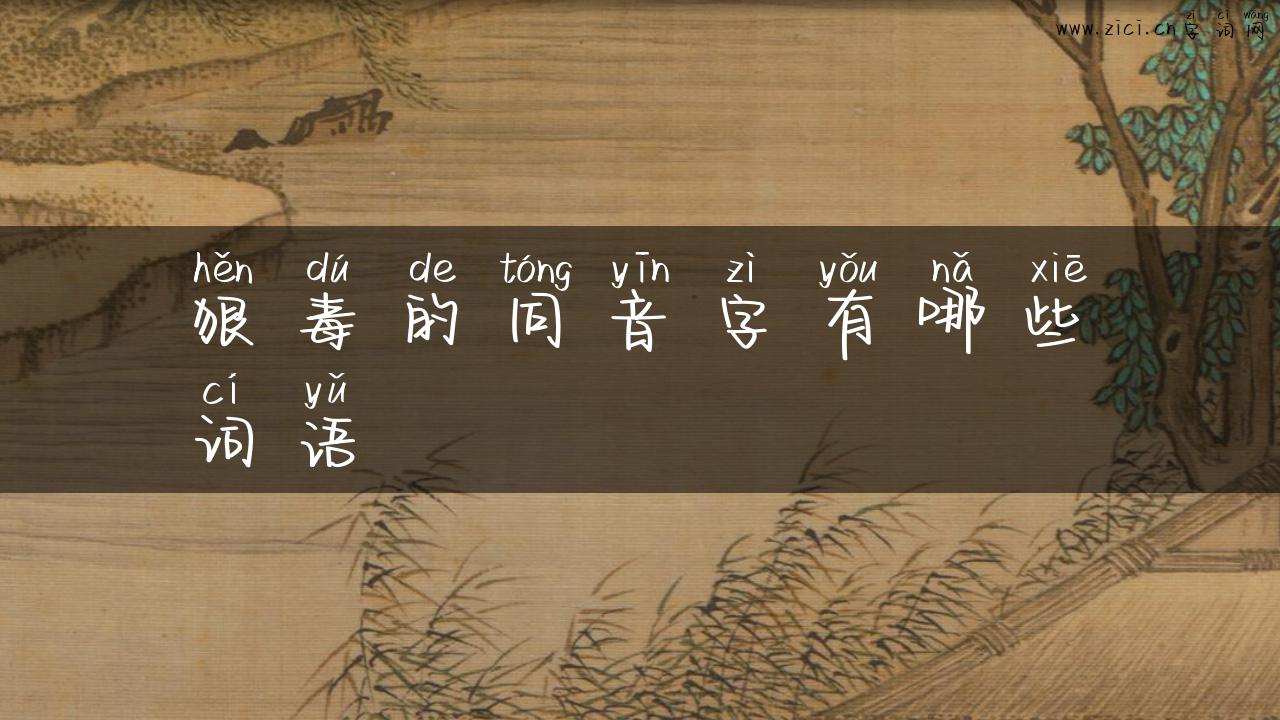 zì cí wǎng
www.zici.cn 字词网
hěn dú de tóng yīn zì yǒu nǎ xiē
狠毒的同音字有哪些
cí yǔ
词语